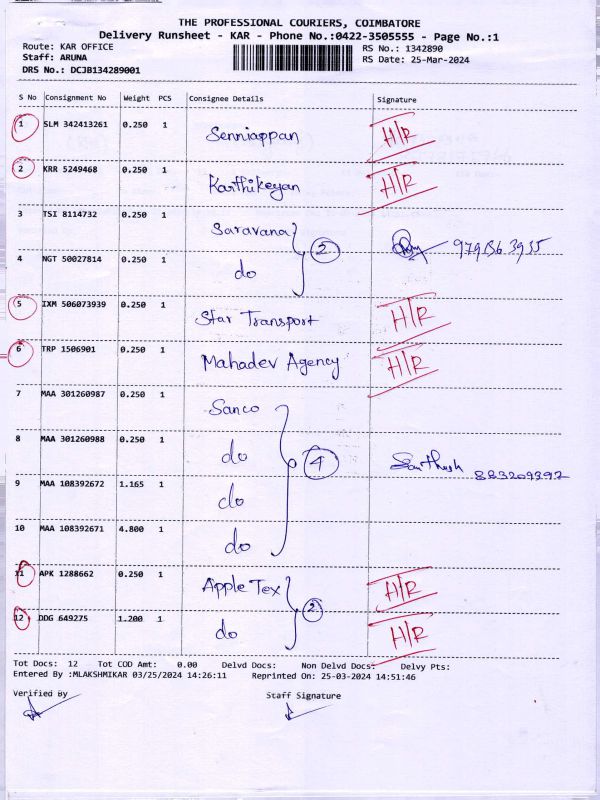 THE PROFESSIONAL COURIERS, COIMBATORE
Delivery Runsheet - KAR - Phone No.:0422-3505555 - Page No.:1
Route: KAR OFFICE RS No.: 1342890
Staff: ARUNA RS Date: 25-Mar-2024
DRS No.: DCJB134289001
S No Consignment No Weight PCS Consignee Details Signature
1 SLM 342413261 0.250 1 Senniappan H/R
2 KRR 5249468 0.250 1 Karthikeyan H/R
3 TSI 8114732 0.250 1 Saravana 2
4 NGT 50027814 0.250 1 do
5 IXM 506073939 0.250 1 Star Transport H/R
6 TRP 1506901 0.250 1 Mahadev Agency H/R
7 MAA 301260987 0.250 1 Sanco
8 MAA 301260988 0.250 1 do 4
9 MAA 108392672 1.165 1 do
10 MAA 108392671 4.800 1 do
11 APK 1288662 0.250 1 Apple Tex 2 H/R
12 DDG 649275 1.200 1 do H/R
Tot Docs: 12 Tot COD Amt: 0.00 Delvd Docs: Non Delvd Docs: Delvy Pts:
Entered By :MLAKSHMIKAR 03/25/2024 14:26:11 Reprinted On: 25-03-2024 14:51:46
Verified By Staff Signature